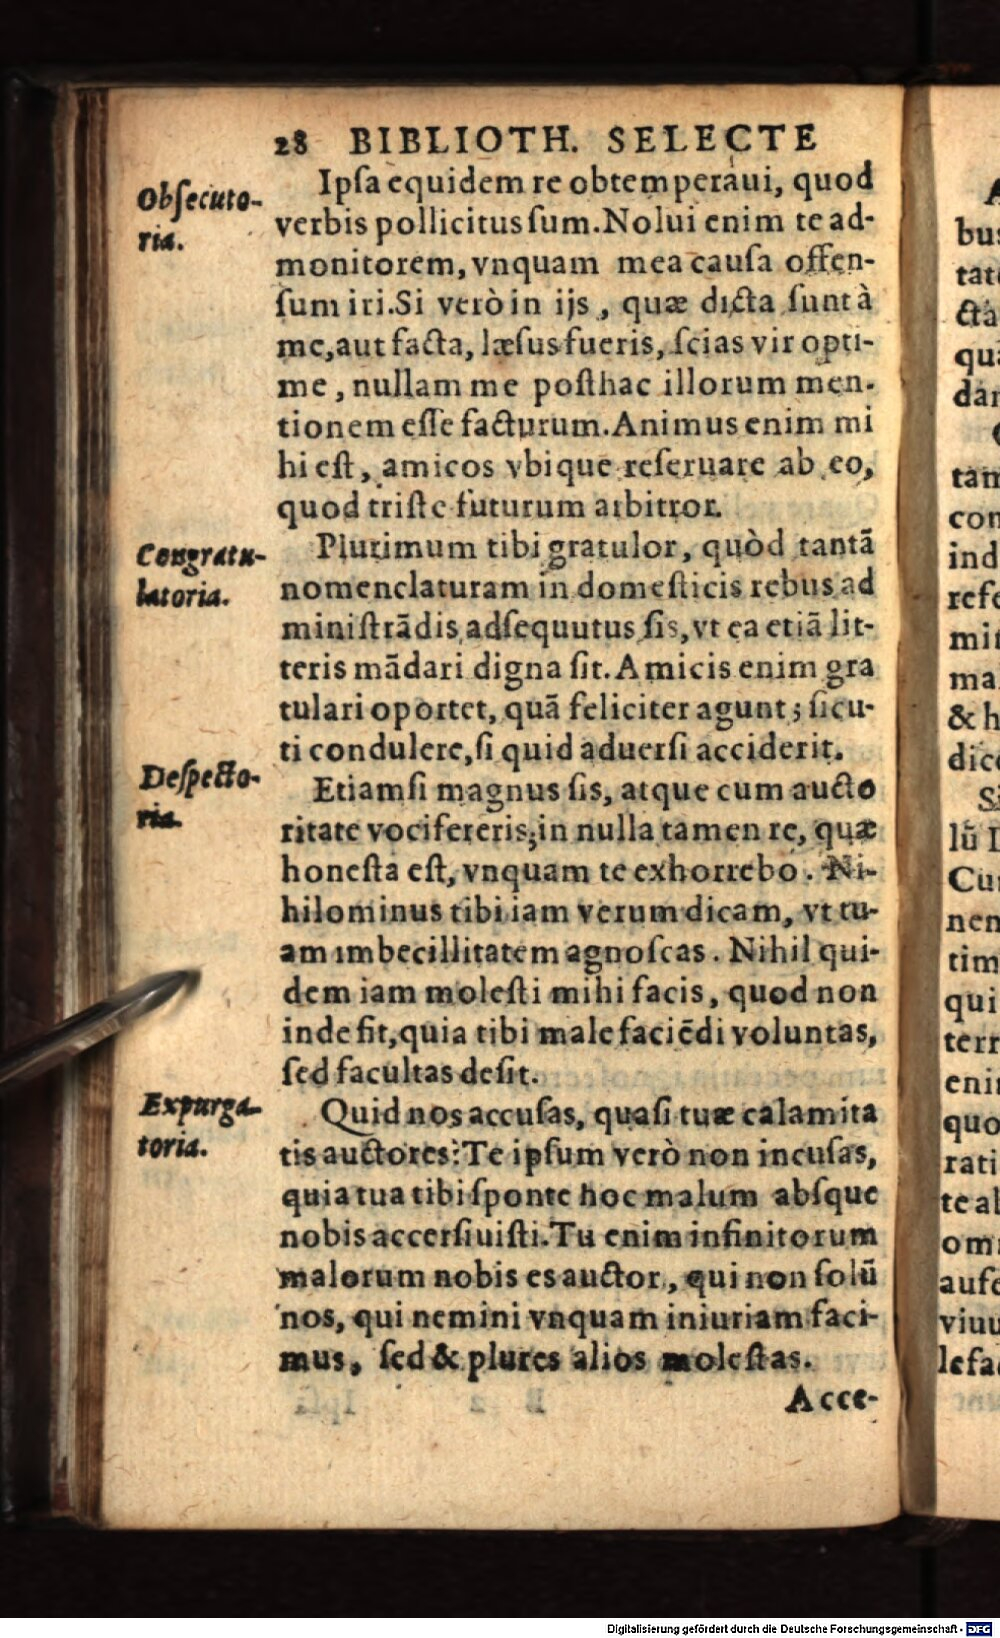 28 BIBLIOTH. SELECTE
Obſecuto-
ria.
Ipſa equidem re obtemperaui, quod
verbis pollicitus ſum. Nolui enim te ad-
monitorem, vnquam mea cauſa offen-
ſum iri. Si verò in ijs, quæ dicta ſunt à
me, aut facta, læſus fueris, ſcias vir opti-
me, nullam me poſthac illorum men-
tionem eſſe facturum. Animus enim mi
hi eſt, amicos vbique reſeruare ab eo,
quod triſte futurum arbitror.
Congratu-
latoria.
Plurimum tibi gratulor, quòd tantã
nomenclaturam in domeſticis rebus ad
miniſtrãdis adſequutus ſis, vt ea etiã lit-
teris mãdari digna ſit. Amicis enim gra
tulari oportet, quã feliciter agunt; ſicu-
ti condulere, ſi quid aduerſi acciderit.
Deſpecto-
ria.
Etiamſi magnus ſis, atque cum aucto
ritate vocifereris; in nulla tamen re, quæ
honeſta eſt, vnquam te exhorrebo. Ni-
hilominus tibi iam verum dicam, vt tu-
am imbecillitatem agnoſcas. Nihil qui-
dem iam moleſti mihi facis, quod non
inde fit, quia tibi male faciẽdi voluntas,
ſed facultas deſit.
Expurga-
toria.
Quid nos accuſas, quaſi tuæ calamita
tis auctores? Te ipſum verò non incuſas,
quia tua tibi ſponte hoc malum abſque
nobis accerſiuiſti. Tu enim infinitorum
malorum nobis es auctor, qui non ſolũ
nos, qui nemini vnquam iniuriam faci-
mus, ſed & plures alios moleſtas.
Acce-
bus
tat
cta
qu
dar
tam
con
ind
refe
min
ma
& h
dic
lũ
Cu
nen
tim
qui
terr
eni
quo
rati
te al
om
aufe
viuu
lefa
Digitalisierung gefördert durch die Deutsche Forschungsgemeinschaft - DFG